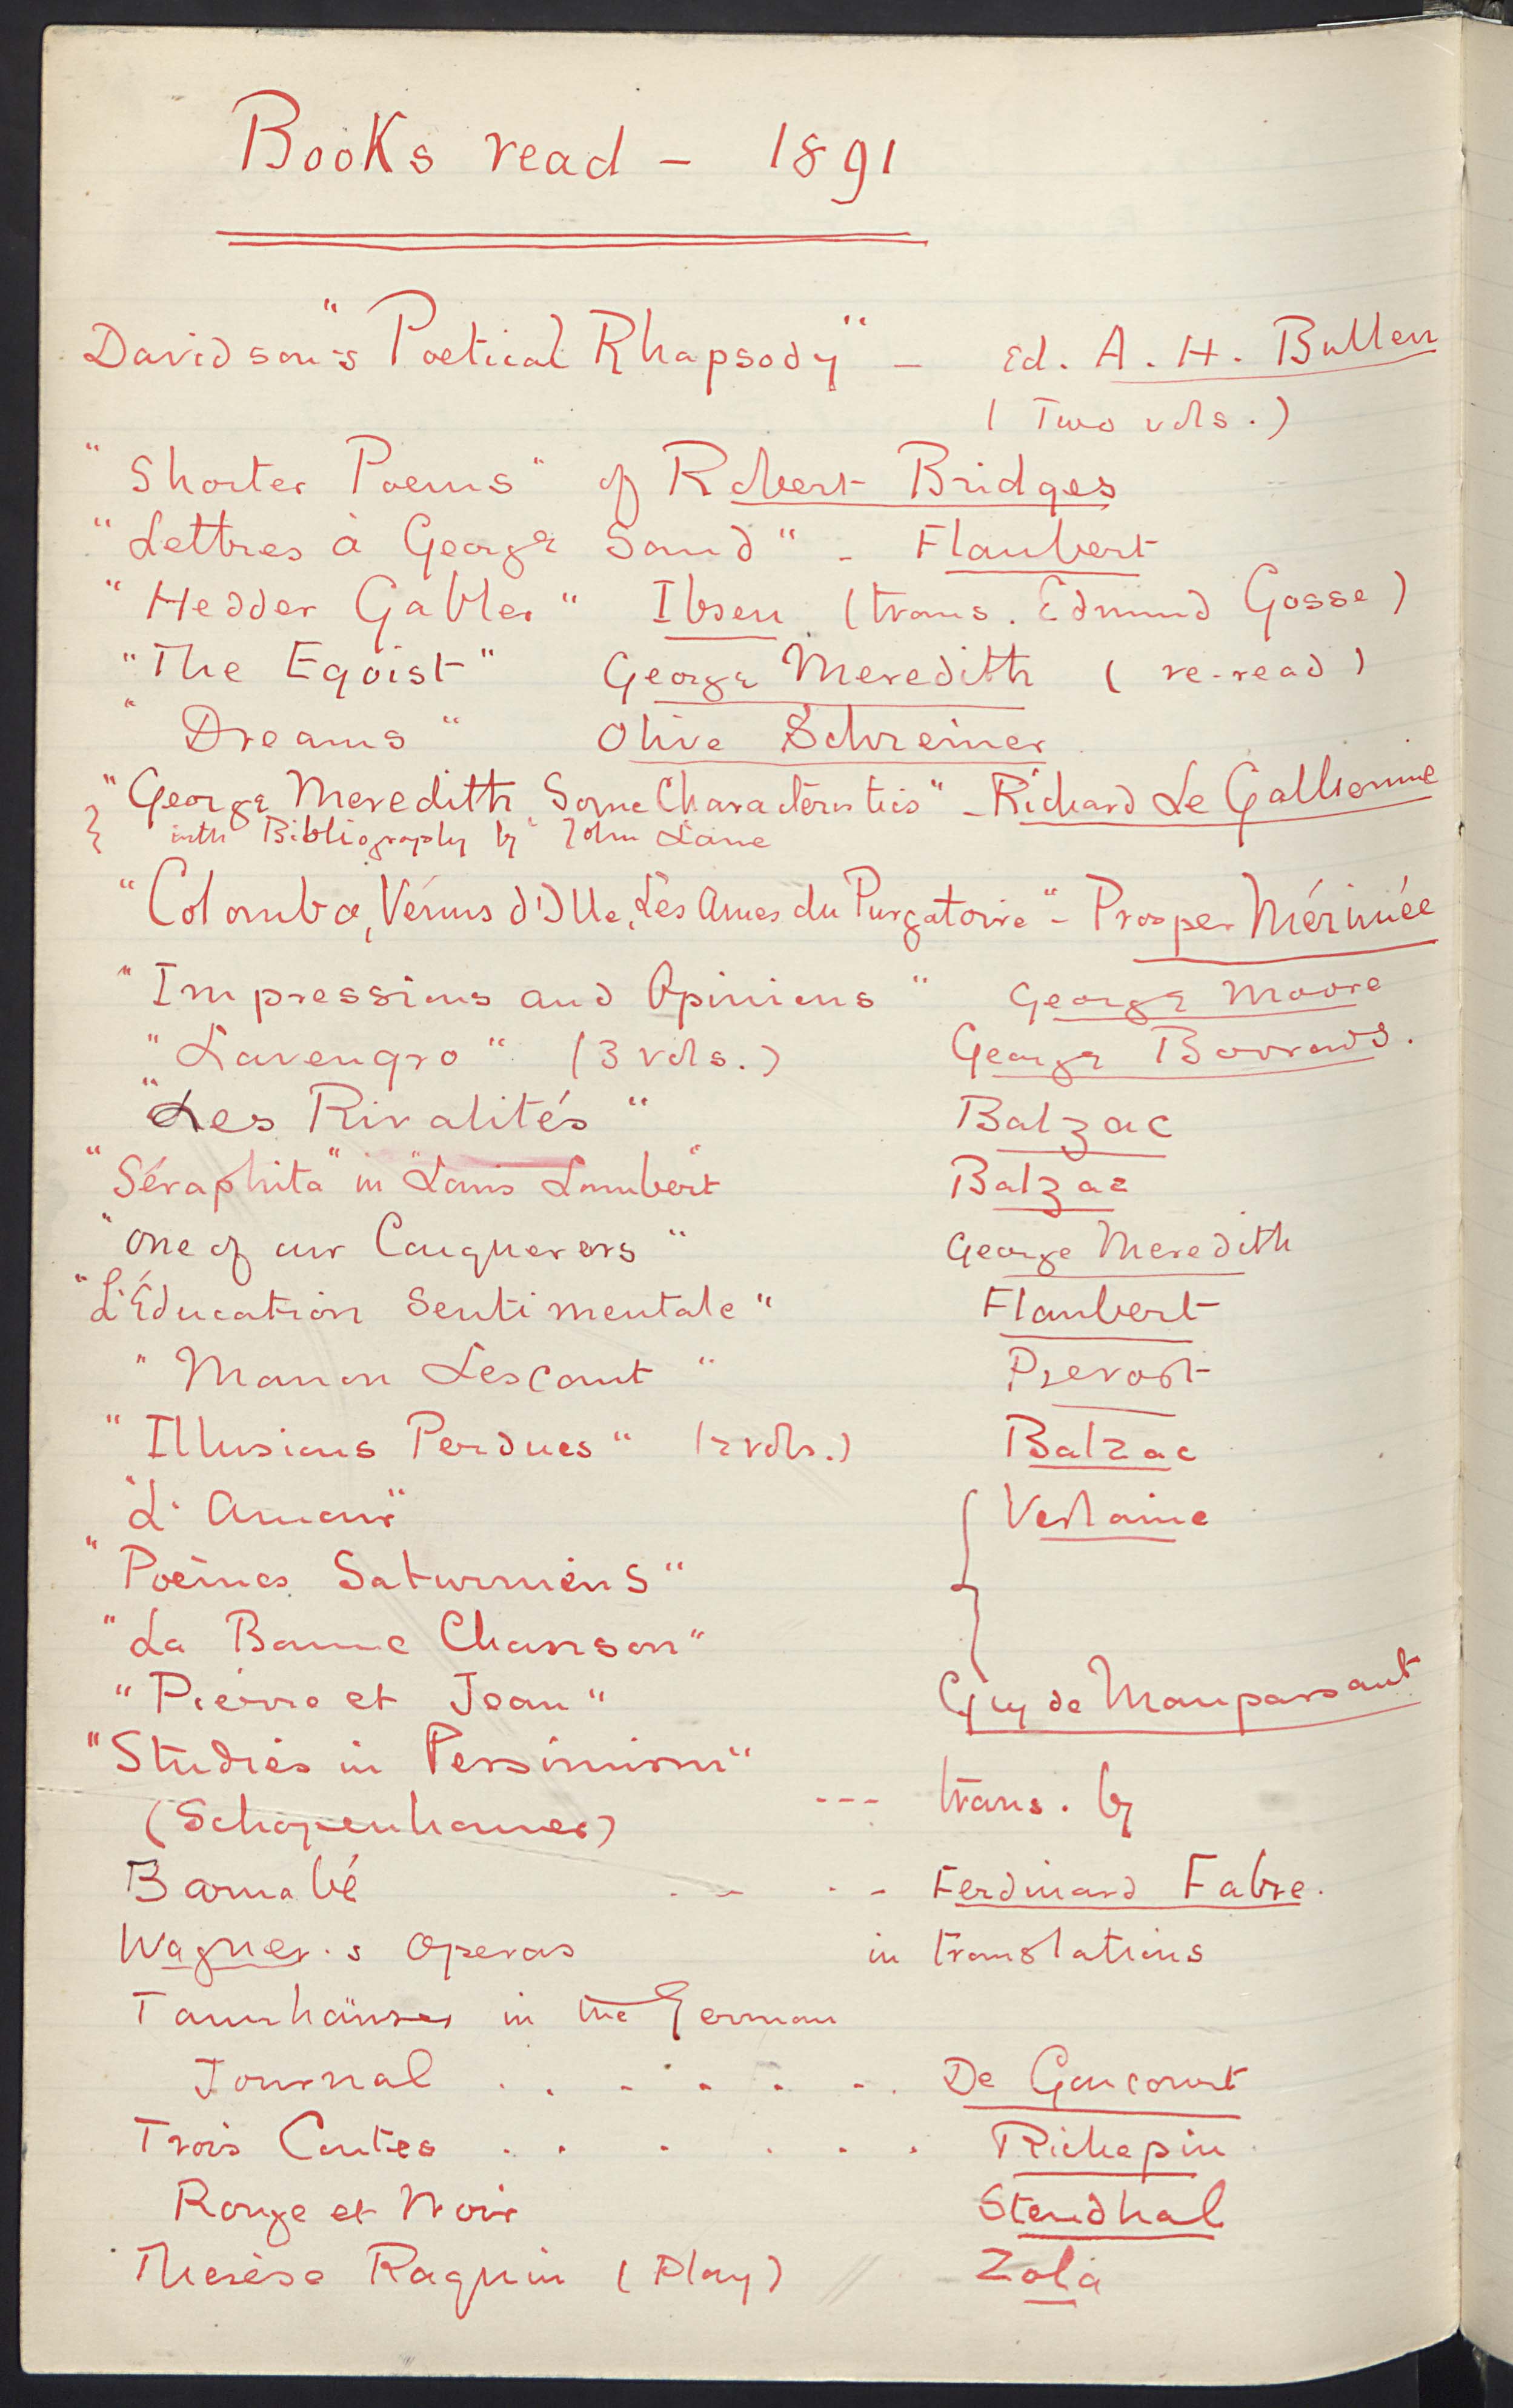 Books read - 1891
Davidson's "Poetical Rhapsody" - Ed. A. H. Bullen
(Two vols.)
"Shorter Poems" of Robert Bridges
"Lettres à George Sand" - Flaubert
"Hedder Gabler" Ibsen (trans. Edmund Gosse)
"The Egoist" George Meredith (re-read)
"Dreams" Olive Schreiner
"George Meredith Some Characteristics" - Richard Le Gallienne
with Bibliography by John Lane
"Colomba, Vénus d'Ille, Les Ames du Purgatoire" - Prosper Mérimée
"Impressions and Opinions" George Moore
"Lavengro" (3 vols.) George Borrows.
"Les Rivalités" Balzac
"Séraphita" in "Louis Lambert" Balzac
"One of our Conquerors" George Meredith
"L'Éducation Sentimentale" Flaubert
"Manon Lescaut" Prevost
"Illusions Perdues" (2 vols.) Balzac
"L'Amour" Verlaine
"Poèmes Saturniens"
"La Bonne Chanson"
"Pierre et Jean" Guy de Maupassant
"Studies in Pessimism"
(Schopenhauer) --- trans. by
Barnabé - - - - Ferdinand Fabre.
Wagner's Operas in translations
Tannhäuser in the German
Journal . . . . . . . De Goncourt
Trois Contes . . . . . . Richepin
Rouge et Noir Stendhal
Therèse Raquin (Play) Zola